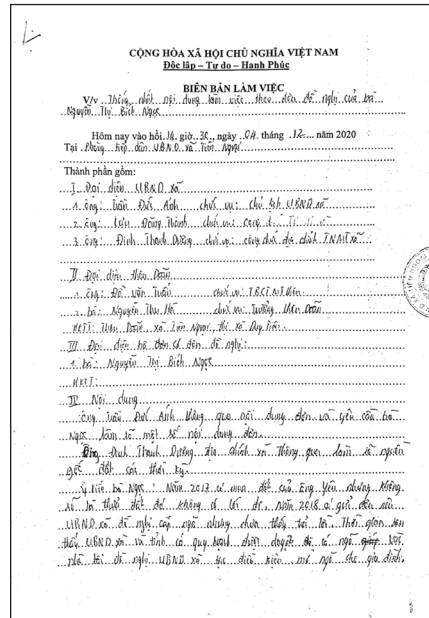 CỘNG HÒA XÃ HỘI CHỦ NGHĨA VIỆT NAM
Độc lập – Tự do – Hạnh Phúc
BIÊN BẢN LÀM VIỆC
V/v Thống nhất nội dung làm việc theo đơn đề nghị của bà
Nguyễn Thị Bích Ngọc
Hôm nay vào hồi 14 giờ 30, ngày 04 tháng 12 năm 2020
Tại Phòng tiếp dân UBND xã Tiên Ngoại
Thành phần gồm:
I Đại diện UBND xã
1. ông: Trần Đức Anh chức vụ: Chủ tịch UBND xã
2. ông: Thanh chức vụ: công
3. ông: Đinh Thanh Dương chức vụ: công chức địa chính TNMT xã
II Đại diện thôn Doãn
1. ông: Đỗ Văn Tuấn chức vụ:
2. bà: Nguyễn Thu Hà chức vụ: Trưởng thôn Doãn
HKTT: thôn Doãn xã Tiên Ngoại, thị xã Duy Tiên
III Đại diện hộ dân có đơn đề nghị:
1. bà: Nguyễn Thị Bích Ngọc
HKTT:
IV Nội dung
ông Trần Đức Anh thông qua nội dung đơn và yêu cầu bà
Ngọc làm rõ một số nội dung đơn.
Ông Đinh Thanh Dương địa chính xã thông qua
gốc đất các thời kỳ.
Ý kiến bà Ngọc: Năm 2017 có mua đất của nhưng không
rõ là thửa đất đó không có lối đi. năm 2018 có gửi đơn
UBND xã đề nghị cấp ngõ nhưng chưa thấy trả lời. Thời gian sau
thấy UBND xã và tỉnh có quy hoạch duyệt đã có ngõ
nhà tôi đề nghị UBND xã tạo điều kiện mở ngõ cho gia đình.